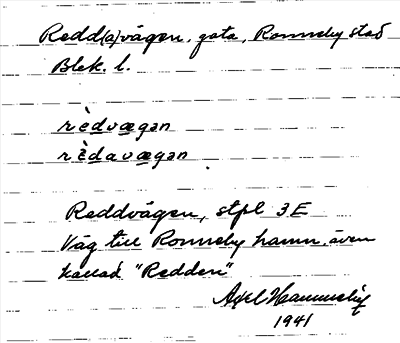 Redd(a)vägen, gata, Ronneby stad
Blek. l.
rèdvægən
rèdavægən
Reddvägen, stpl 3E
Väg till Ronneby hamn, även
kallad "Redden"
Axel
1941